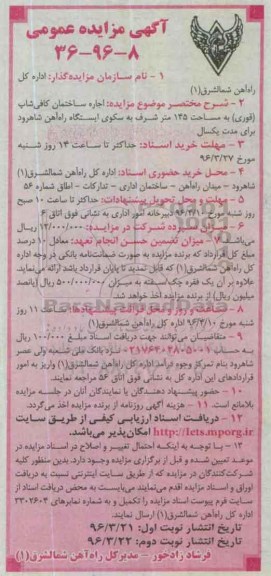 آگهی مزایده عمومی
۳۶-۹۶-۸
۱ - نام سازمان مزایده‌گذار: اداره کل
راه‌آهن شمالشرق(۱)
۲ - شرح مختصر موضوع مزایده: اجاره ساختمان کافی‌شاپ
(فوری) به مساحت ۱۴۵ متر مشرف به سکوی ایستگاه راه‌آهن شاهرود
برای مدت یکسال
۳ - مهلت خرید اسناد: حداکثر تا ساعت ۱۴ روز شنبه
مورخ ۹۶/۳/۲۷
۴ - محل خرید حضوری اسناد: اداره کل راه‌آهن شمالشرق(۱)
شاهرود - میدان راه‌آهن - ساختمان اداری - تدارکات - اطاق شماره ۵۶
۵ - مهلت و محل تحویل پیشنهادات: حداکثر تا ساعت ۱۰ صبح
روز شنبه مورخ دبیرخانه امور اداری به نشانی فوق اتاق
سپرده شرکت در مزایده: ۱۲/۰۰۰/۰۰۰ ریال
می‌باشد. ۷ - میزان تضمین حسن انجام تعهد: معادل ۱۰ درصد
مبلغ کل قرارداد که برنده مزایده به صورت ضمانت‌نامه بانکی در وجه اداره
کل راه‌آهن شمالشرق(۱) که قابل تمدید تا پایان قرارداد باشد ارائه می‌نماید.
علاوه بر آن یک فقره چک سفته به میزان ۵۰۰/۰۰۰/۰۰۰ ریال (پانصد
میلیون ریال) از برنده مزایده اخذ خواهد شد.
۸ - ساعت و روز و محل قرائت پیشنهادها: ساعت ۱۱ روز
شنبه مورخ ۹۶/۴/۱۰ اداره کل راه‌آهن شمالشرق(۱)
۹ - متقاضیان می‌توانند جهت دریافت اسناد مبلغ ۱۰۰/۰۰۰ ریال
به حساب نزد بانک ملی شعبه ولی عصر
شاهرود بنام تمرکز وجوه درآمد اداره کل راه‌آهن شمالشرق(۱) واریز به امور
قراردادهای این اداره کل به نشانی فوق اتاق ۵۶ مراجعه نمایند.
۱۰ - حضور پیشنهاد دهندگان یا نمایندگان آنان در جلسه مزایده
بلامانع است. ۱۱ - هزینه آگهی روزنامه از برنده مزایده اخذ می‌گردد.
۱۲ - دریافت اسناد ارزیابی کیفی از طریق سایت
http://iets.mporg.ir امکان‌پذیر می‌باشد.
۱۳ - با توجه به اینکه احتمال تغییر و اصلاح در اسناد مزایده در
موعد تعیین شده و قبل از برگزاری مزایده وجود دارد، بدین منظور کلیه
شرکت‌کنندگان در مزایده که از طریق سایت اینترنتی نسبت به دریافت
اوراق و اسناد مزایده اقدام می‌نمایند می‌بایست به محض دریافت اسناد از
سایت فرم پیوست اسناد مزایده را تکمیل و به شماره نمابرهای ۳۳۰۲۶۰۴
اداره کل راه‌آهن شمالشرق(۱) ارسال نمایند.
تاریخ انتشار نوبت اول: ۹۶/۳/۲۱
تاریخ انتشار نوبت دوم: ۹۶/۳/۲۲
فرشاد زادخور - مدیرکل راه‌آهن شمالشرق(۱)